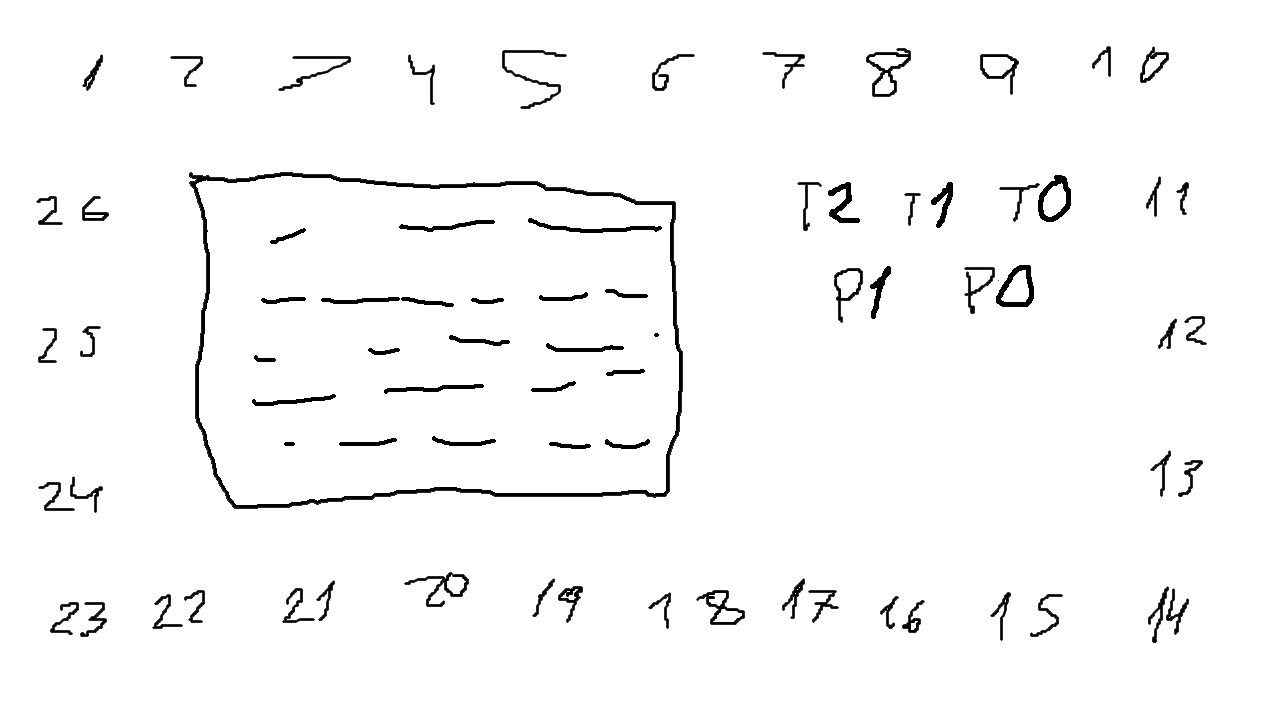 1 2 4 5 6 7 8 9 10
26 T2 T1 T0 11
P1 P0
25 12
24 13
23 22 21 20 19 18 17 16 15 14